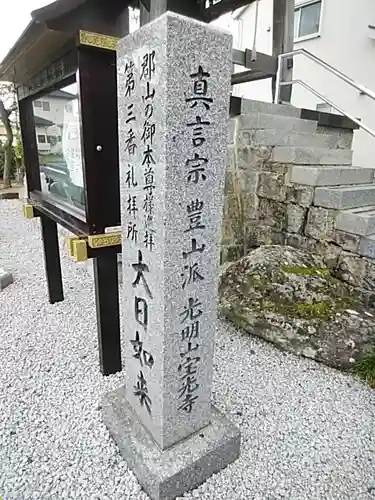 真言宗 豊山派 光明山宝光寺
郡山の御本尊様巡拝
第三番礼拝所
大日如来